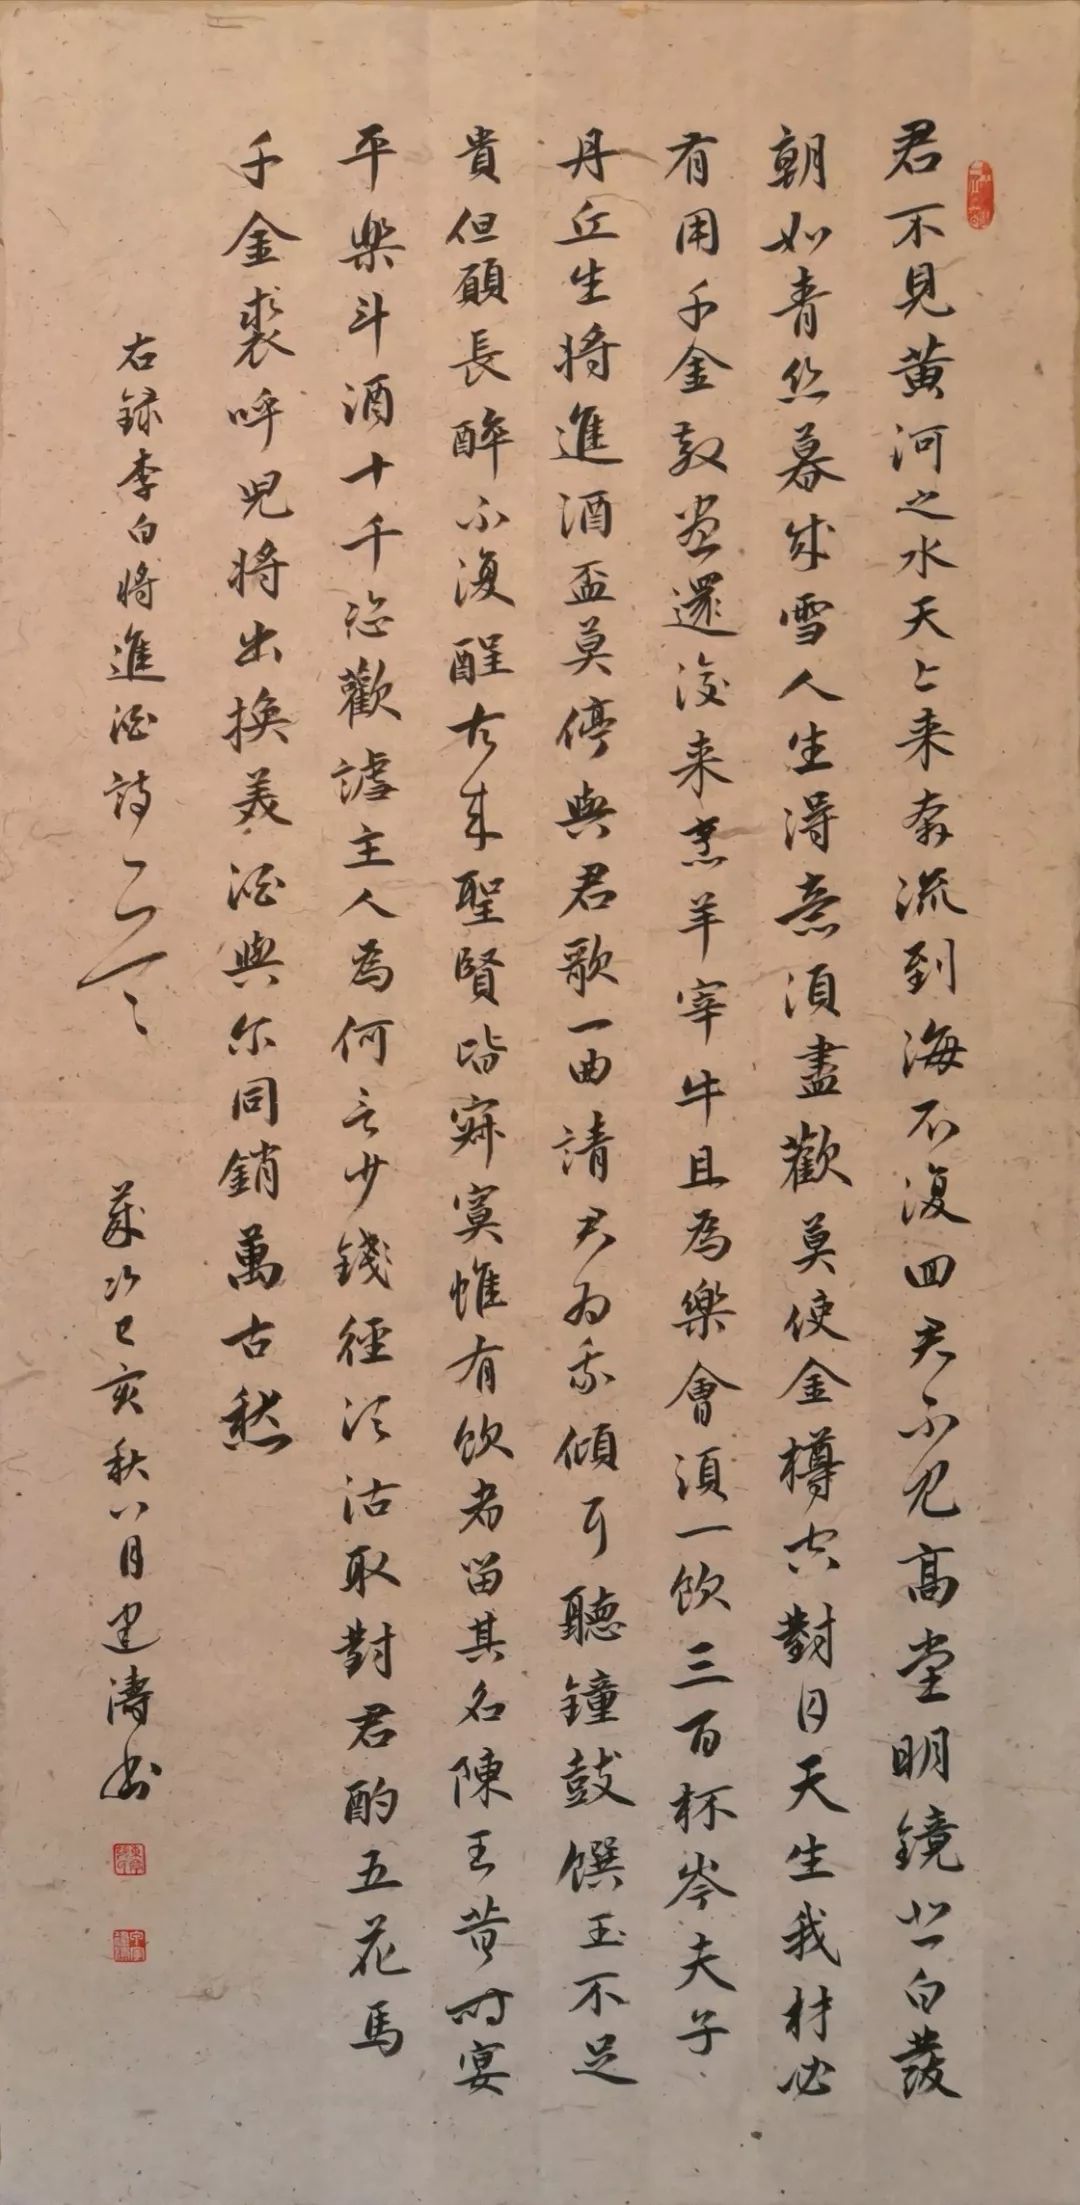 君不見黄河之水天上来奔流到海不復回君不见高堂明鏡悲白發
朝如青丝暮成雪人生得意須盡歡莫使金樽空對月天生我材必
有用千金散盡還復来烹羊宰牛且為樂會須一飲三百杯岑夫子
丹丘生将進酒盃莫停與君歌一曲請君为我傾耳聽鐘鼓饌玉不足
貴但願長醉不復醒古来聖賢皆寂寞惟有飲者留其名陳王昔時宴
平樂斗酒十千恣歡謔主人為何言少錢徑須沽取對君酌五花馬
千金裘呼兒将出换美酒與尔同銷萬古愁
右録李白将進酒詩 歲次己亥秋八月建濤書